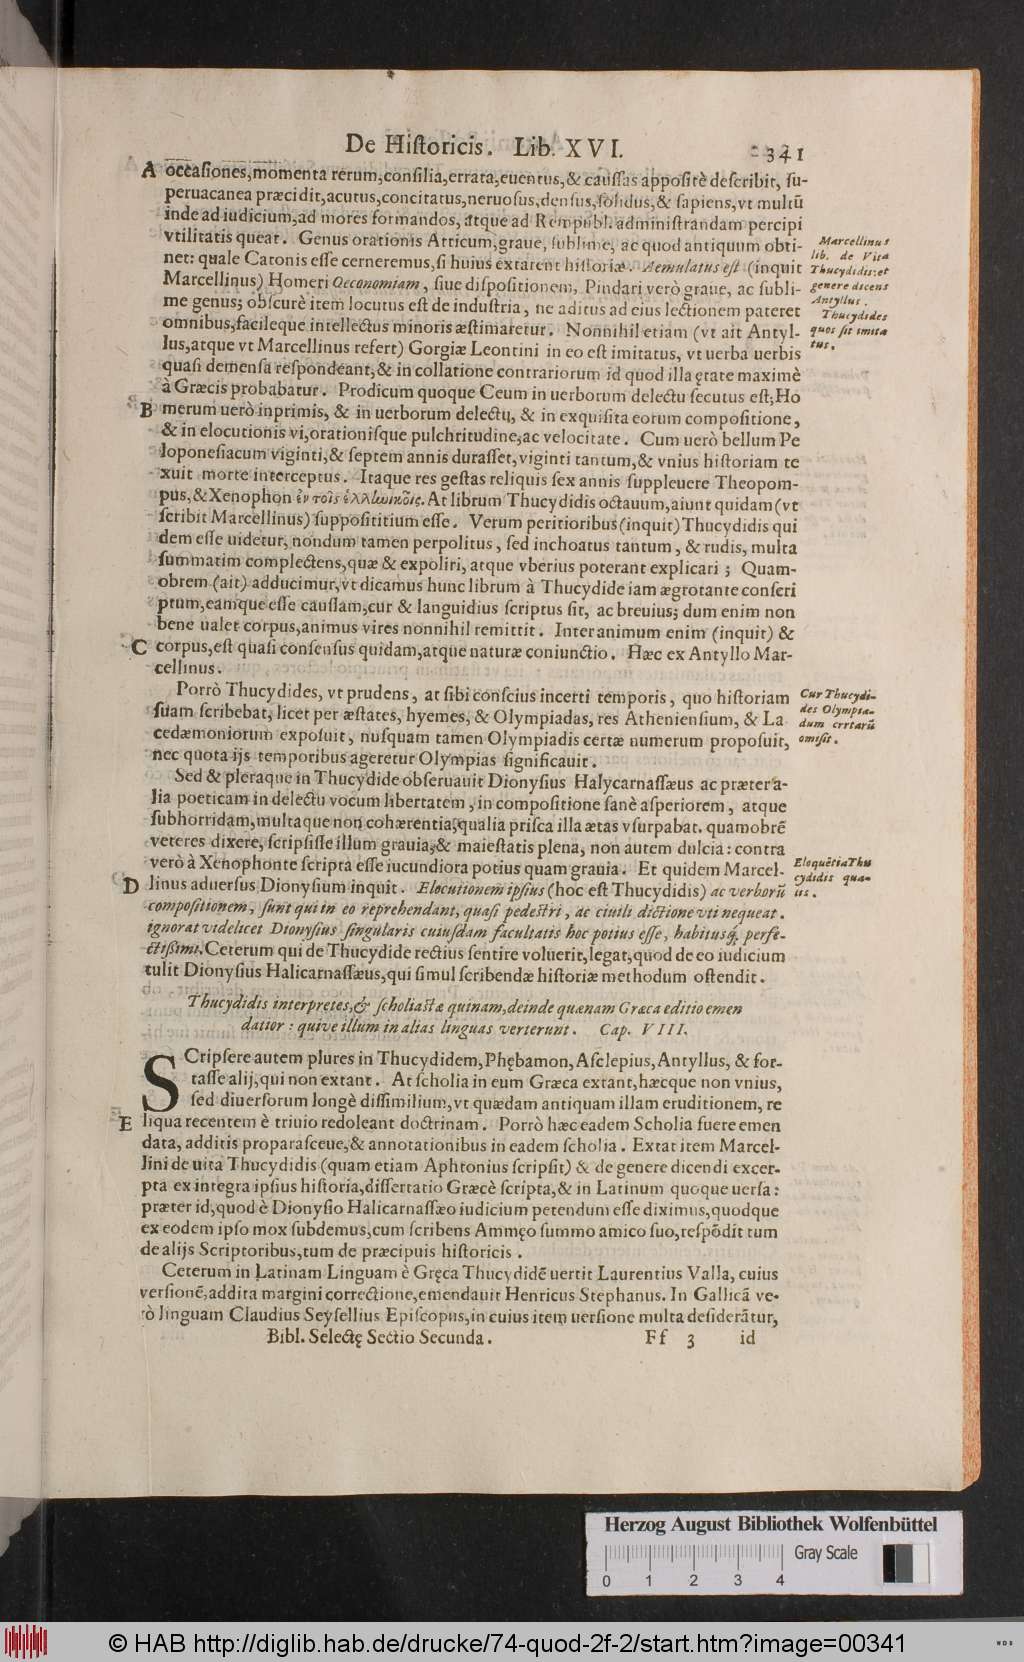 De Hiſtoricis. Lib. XVI. 341
A occaſiones, momenta rerum, conſilia, errata, euentus, & cauſſas appoſitè deſcribit, ſu-
peruacanea præcidit, acutus, concitatus, neruoſus, denſus, ſolidus, & ſapiens, vt multū
inde ad iudicium, ad mores formandos, atque ad Rempubl. adminiſtrandam percipi
vtilitatis queat. Genus orationis Atticum, graue, ſublime, ac quod antiquum obti-
net: quale Catonis eſſe cerneremus, ſi huius extarent hiſtoriæ. Aemulatus eſt (inquit
Marcellinus) Homeri Oeconomiam, ſiue diſpoſitionem, Pindari verò graue, ac ſubli-
me genus; obſcurè item locutus eſt de induſtria, ne aditus ad eius lectionem pateret
omnibus, facileque intellectus minoris æſtimaretur. Nonnihil etiam (vt ait Antyl-
lus, atque vt Marcellinus refert) Gorgiæ Leontini in eo eſt imitatus, vt uerba uerbis
quaſi demenſa reſpondeant, & in collatione contrariorum id quod illa ętate maximè
à Græcis probabatur. Prodicum quoque Ceum in uerborum delectu ſecutus eſt; Ho
B merum uerò inprimis, & in uerborum delectu, & in exquiſita eorum compoſitione,
& in elocutionis vi, orationiſque pulchritudine, ac velocitate. Cum uerò bellum Pe
loponeſiacum viginti, & ſeptem annis duraſſet, viginti tantum, & vnius hiſtoriam te
xuit morte interceptus. Itaque res geſtas reliquis ſex annis ſuppleuere Theopom-
pus, & Xenophon ἐν τοῖς ἑλληνικοῖς. At librum Thucydidis octauum, aiunt quidam (vt
ſcribit Marcellinus) ſuppoſititium eſſe. Verum peritioribus (inquit) Thucydidis qui
dem eſſe uidetur, nondum tamen perpolitus, ſed inchoatus tantum, & rudis, multa
ſummatim complectens, quæ & expoliri, atque vberius poterant explicari; Quam-
obrem (ait) adducimur, vt dicamus hunc librum à Thucydide iam ægrotante conſcri
ptum, eamque eſſe cauſſam, cur & languidius ſcriptus ſit, ac breuius; dum enim non
bene ualet corpus, animus vires nonnihil remittit. Inter animum enim (inquit) &
C corpus, eſt quaſi conſenſus quidam, atque naturæ coniunctio. Hæc ex Antyllo Mar-
cellinus.
Marcellinus
lib. de Vita
Thucydidis: et
genere dicens
Antyllus.
Thucydides
quos ſit imita
tus.
Porrò Thucydides, vt prudens, at ſibi conſcius incerti temporis, quo hiſtoriam
ſuam ſcribebat, licet per æſtates, hyemes, & Olympiadas, res Athenienſium, & La
cedæmoniorum expoſuit, nuſquam tamen Olympiadis certæ numerum propoſuit,
nec quota ijs temporibus ageretur Olympias ſignificauit.
Cur Thucydi-
des Olympia-
dum certarū
omiſit.
Sed & pleraque in Thucydide obſeruauit Dionyſius Halycarnaſſæus ac præter a-
lia poeticam in delectu vocum libertatem, in compoſitione ſanè aſperiorem, atque
ſubhorridam, multaque non cohærentia, qualia priſca illa ætas vſurpabat. quamobrē
veteres dixere, ſcripſiſſe illum grauia, & maieſtatis plena, non autem dulcia: contra
verò à Xenophonte ſcripta eſſe iucundiora potius quam grauia. Et quidem Marcel-
D linus aduerſus Dionyſium inquit. Elocutionem ipſius (hoc eſt Thucydidis) ac verborū
compoſitionem, ſunt qui in eo reprehendant, quaſi pedeſtri, ac ciuili dictione vti nequeat.
ignorat videlicet Dionyſius ſingularis cuiuſdam facultatis hoc potius eſſe, habituſq́. perfe-
ctißimi. Ceterum qui de Thucydide rectius ſentire voluerit, legat, quod de eo iudicium
tulit Dionyſius Halicarnaſſæus, qui ſimul ſcribendæ hiſtoriæ methodum oſtendit.
Eloquētia Thu
cydidis qua-
lis.
Thucydidis interpretes, & ſcholiaſtæ quinam, deinde quænam Græca editio emen
datior: quive illum in alias linguas verterunt. Cap. VIII.
SCripſere autem plures in Thucydidem, Phębamon, Aſclepius, Antyllus, & for-
taſſe alij, qui non extant. At ſcholia in eum Græca extant, hæcque non vnius,
ſed diuerſorum longè diſſimilium, vt quædam antiquam illam eruditionem, re
E liqua recentem è triuio redoleant doctrinam. Porrò hæc eadem Scholia fuere emen
data, additis proparaſceue, & annotationibus in eadem ſcholia. Extat item Marcel-
lini de uita Thucydidis (quam etiam Aphtonius ſcripſit) & de genere dicendi excer-
pta ex integra ipſius hiſtoria, diſſertatio Græcè ſcripta, & in Latinum quoque uerſa:
præter id, quod è Dionyſio Halicarnaſſæo iudicium petendum eſſe diximus, quodque
ex eodem ipſo mox ſubdemus, cum ſcribens Ammęo ſummo amico ſuo, reſpōdit tum
de alijs Scriptoribus, tum de præcipuis hiſtoricis.
Ceterum in Latinam Linguam è Gręca Thucydidē uertit Laurentius Valla, cuius
verſionē, addita margini correctione, emendauit Henricus Stephanus. In Gallicā ve-
rò linguam Claudius Seyſellius Epiſcopus, in cuius item uerſione multa deſiderātur,
Bibl. Selectę Sectio Secunda. Ff 3 id
Herzog August Bibliothek Wolfenbüttel
Gray Scale
0 1 2 3 4
© HAB http://diglib.hab.de/drucke/74-quod-2f-2/start.htm?image=00341